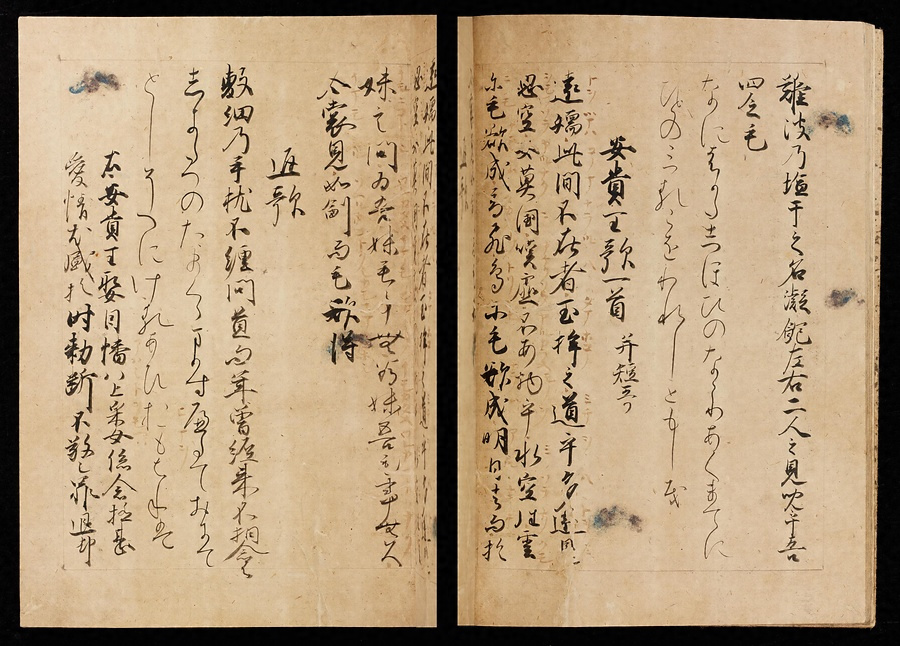 難波乃塩干之名凝飽左右二人之見児乎吾
四乏毛
なにはかたしほひのなこりあくまてに
ひとのみるこをわれしともしも
安貴王歌一首 并短哥
遠嬬此間不在者玉桙之道乎多遠見
思空安莫國嘆虚不安物乎水空往雲
尓毛欲成高飛鳥尓毛欲成明日去而於
妹言問為吾妹毛事無為妹吾毛事無久
今裳見如副而毛欲得
返歌
敷細乃手枕不纒間置而年曾經来不相念者
しきたへのたまくらまかすへたておきて
としそへにけるあひおもはねは
右安貴王娶因幡八上采女係念極甚
愛情尤盛於時勅断不敬之罪退却